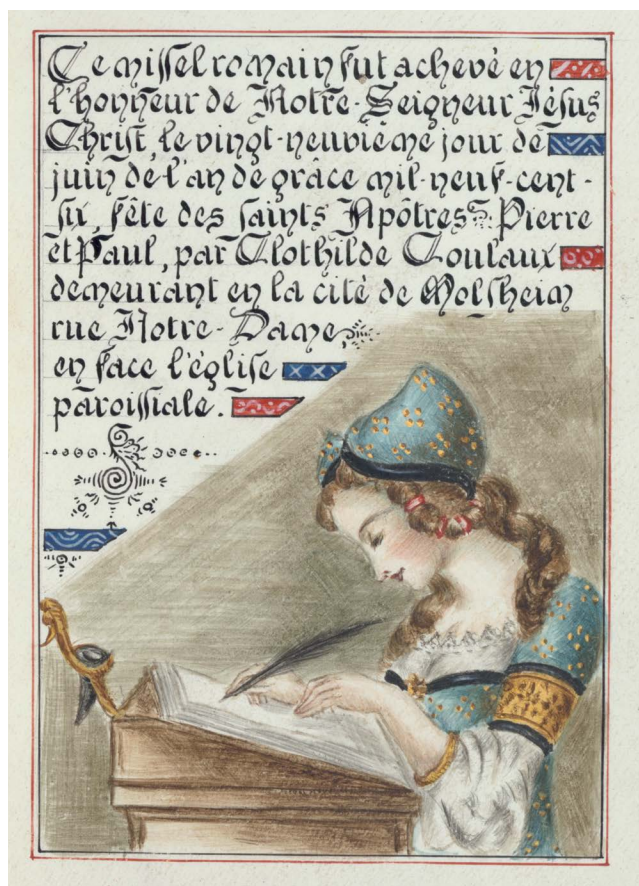 Ce missel romain fut achevé en
l'honneur de Notre-Seigneur Jésus
Christ, le vingt-neuvième jour de
juin de l'an de grâce mil-neuf-cent-
six, fête des saints Apôtres Pierre
et Paul, par Clothilde Coulaux
demeurant en la cité de Molsheim
rue Notre-Dame,
en face l'église
paroissiale.